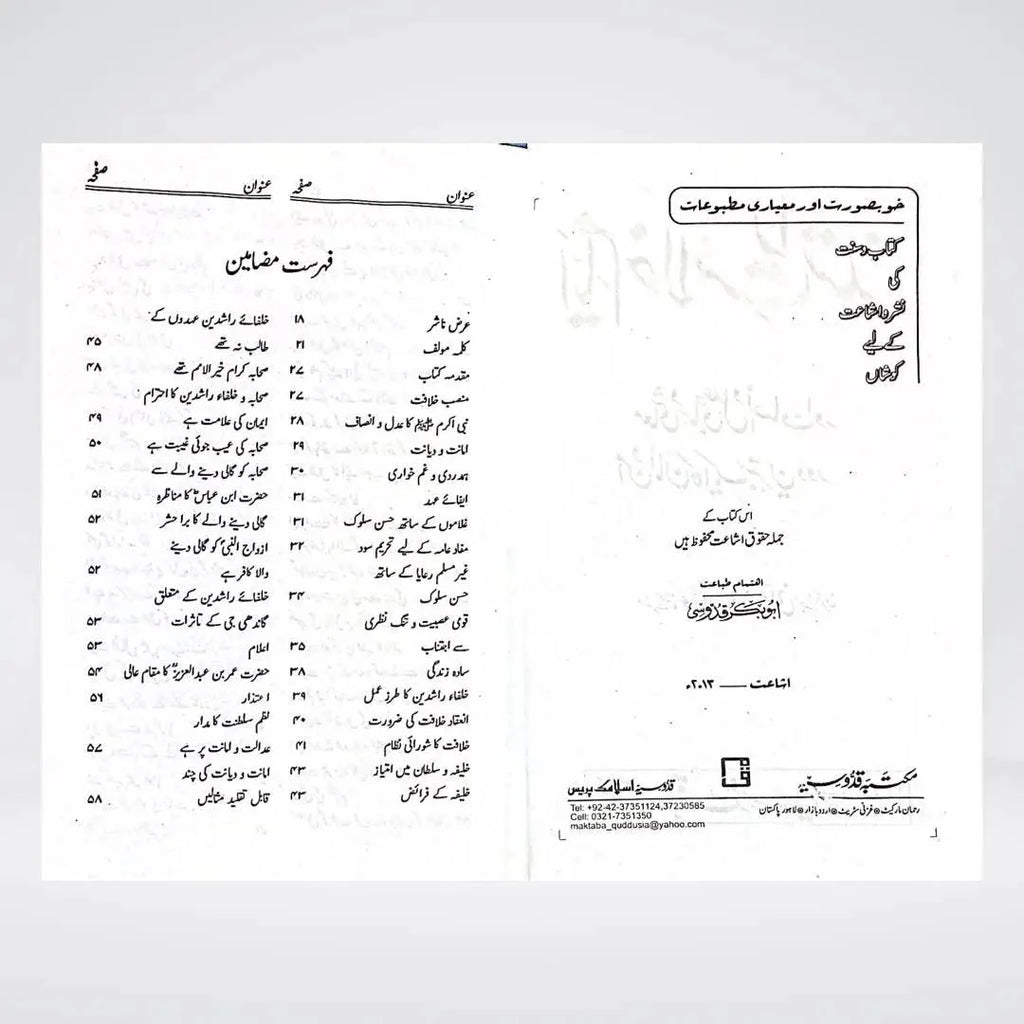 خوبصورت اور معیاری مطبوعات
کتاب و سنت
کی
نشر و اشاعت
کے لیے
کوشاں
اس کتاب کے
جملہ حقوق اشاعت محفوظ ہیں
اہتمام طباعت
ابوبکر قدوسی
اشاعت —— ۲۰۱۳ء
مکتبہ قدوسیہ
قدوسیہ اسلامک پریس
رحمان مارکیٹ ⊙ غزنی سٹریٹ ⊙ اردو بازار ⊙ لاہور پاکستان
Tel: +92-42-37351124,37230585
Cell: 0321-7351350
maktaba_quddusia@yahoo.com
عنوان صفحہ عنوان صفحہ
فہرست مضامین
عرض ناشر ۱۸
کلمہ مولف ۲۱
مقدمہ کتاب ۲۷
منصب خلافت ۲۷
نبی اکرم ﷺ کا عدل و انصاف ۲۸
امانت و دیانت ۲۹
ہمدردی و غم خواری ۳۰
ایفائے عہد ۳۱
غلاموں کے ساتھ حسن سلوک ۳۱
مفاد عامہ کے لیے تحریم سود ۳۲
غیر مسلم رعایا کے ساتھ
حسن سلوک ۳۴
قومی عصبیت و تنگ نظری
سے اجتناب ۳۵
سادہ زندگی ۳۸
خلفاء راشدین کا طرز عمل ۳۹
انعقاد خلافت کی ضرورت ۴۰
خلافت کا شورائی نظام ۴۱
خلیفہ و سلطان میں امتیاز ۴۳
خلیفہ کے فرائض ۴۳
خلفائے راشدین عہدوں کے
طالب نہ تھے ۴۵
صحابہ کرام خیر الامم تھے ۴۸
صحابہ و خلفاء راشدین کا احترام
ایمان کی علامت ہے ۴۹
صحابہ کی عیب جوئی غیبت ہے ۵۰
صحابہ کو گالی دینے والے سے
حضرت ابن عباسؓ کا مناظرہ ۵۱
گالی دینے والے کا برا حشر ۵۲
ازواج النبیؐ کو گالی دینے
والا کافر ہے ۵۲
خلفائے راشدین کے متعلق
گاندھی جی کے تاثرات ۵۳
اعلام ۵۳
حضرت عمر بن عبدالعزیزؒ کا مقام عالی ۵۴
اعتذار ۵۶
نظم سلطنت کا مدار
عدالت و امانت پر ہے ۵۷
امانت و دیانت کی چند
قابل تقلید مثالیں ۵۸